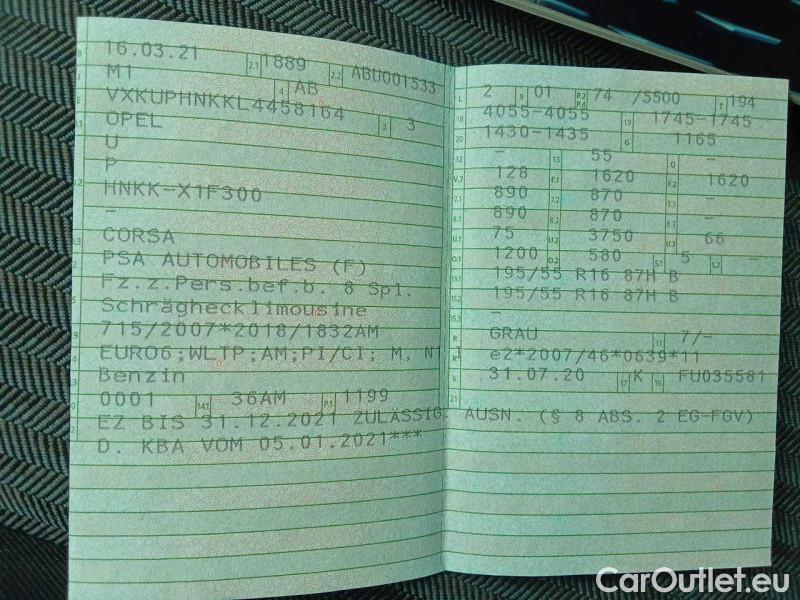 16.03.21 2.1 1889 2.2 ABU001533
M1 4 AB
VXKUPHNKKL4458164 3 3
OPEL
U
P
HNKK-X1F300
-
CORSA
PSA AUTOMOBILES (F)
Fz.z.Pers.bef.b. 8 Spl.
Schräghecklimousine
715/2007*2018/1832AM
EURO6;WLTP;AM;PI/CI; M, N1 I
Benzin
0001 14.1 36AM P.1 1199
EZ BIS 31.12.2021 ZULÄSSIG. AUSN. (§ 8 ABS. 2 EG-FGV)
D. KBA VOM 05.01.2021***
L 2 9 01 P.2 P.4 74 /5500 T 194
18 4055-4055 19 1745-1745
20 1430-1435 G 1165
12 - 13 55 Q -
V.7 128 F.1 1620 F.2 1620
7.1 890 7.2 870 7.3 -
8.1 890 8.2 870 8.3 -
U.1 75 U.2 3750 U.3 66
O.1 1200 O.2 580 S.1 5 S.2 -
15.1 195/55 R16 87H B
15.2 195/55 R16 87H B
15.3 -
R GRAU 11 7/-
K e2*2007/46*0639*11
6 31.07.20 17 K 16 FU035581
21
CarOutlet.eu